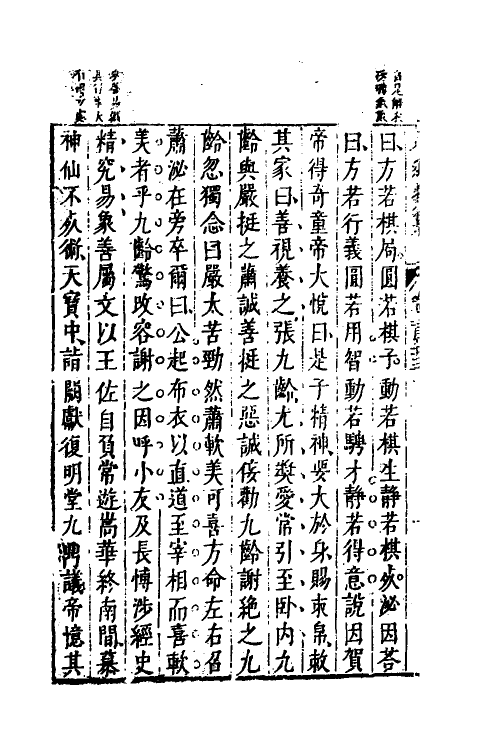 曰方若棋局圓若棋子動若棋生静若棋死泌因荅
曰方若行義圓若用智動若騁才静若得意說因賀
帝得奇童帝大悅曰是子精神要大於身賜束帛敕
其家曰善視養之張九齡尤所奬愛常引至卧内九
齡與嚴挺之蕭誠善挺之惡誠佞勸九齡謝絶之九
齡忽獨念曰嚴太苦勁然蕭軟美可喜方命左右召
蕭泌在旁卒爾曰公起布衣以直道至宰相而喜軟
美者乎九齡驚改容謝之因呼小友及長博涉經史
精究易象善屬文以王佐自負常遊嵩華終南間慕
神仙不死術天寶中詣闕獻復明堂九鼎議帝憶其